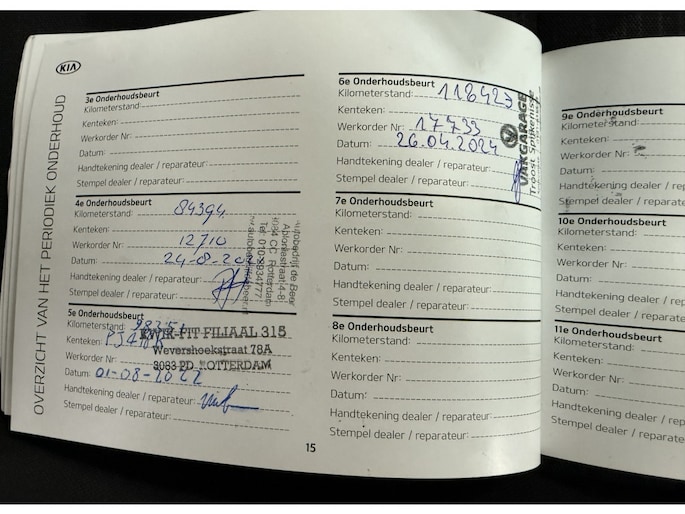 KIA
OVERZICHT VAN HET PERIODIEK ONDERHOUD
3e Onderhoudsbeurt
Kilometerstand:
Kenteken:
Werkorder Nr:
Datum:
Handtekening dealer / reparateur:
Stempel dealer / reparateur:
4e Onderhoudsbeurt
Kilometerstand: 84394
Kenteken:
Werkorder Nr: 12710
Datum: 24-08-20
Handtekening dealer / reparateur:
Stempel dealer / reparateur:
Autobedrijf de Beer
CC Rotterdam
5e Onderhoudsbeurt
Kilometerstand:
Kenteken:
Werkorder Nr:
Datum: 01-08-2022
Handtekening dealer / reparateur:
Stempel dealer / reparateur:
KWIK-FIT FILIAAL 315
Wevershoekstraat 78A
3083 PD ROTTERDAM
15
6e Onderhoudsbeurt
Kilometerstand: 118423
Kenteken:
Werkorder Nr: 17733
Datum: 26.04.2024
Handtekening dealer / reparateur:
Stempel dealer / reparateur:
VAKGARAGE
Troost Spijkenisse
7e Onderhoudsbeurt
Kilometerstand:
Kenteken:
Werkorder Nr:
Datum:
Handtekening dealer / reparateur:
Stempel dealer / reparateur:
8e Onderhoudsbeurt
Kilometerstand:
Kenteken:
Werkorder Nr:
Datum:
Handtekening dealer / reparateur:
Stempel dealer / reparateur:
9e Onderhoudsbeurt
Kilometerstand:
Kenteken:
Werkorder Nr:
Datum:
Handtekening dealer / rep
Stempel dealer / repara
10e Onderhoudsbeurt
Kilometerstand:
Kenteken:
Werkorder Nr:
Datum:
Handtekening dealer / repa
Stempel dealer / reparate
11e Onderhoudsbeurt
Kilometerstand:
Kenteken:
Werkorder Nr:
Datum:
Handtekening dealer / repara
Stempel dealer / reparateur: